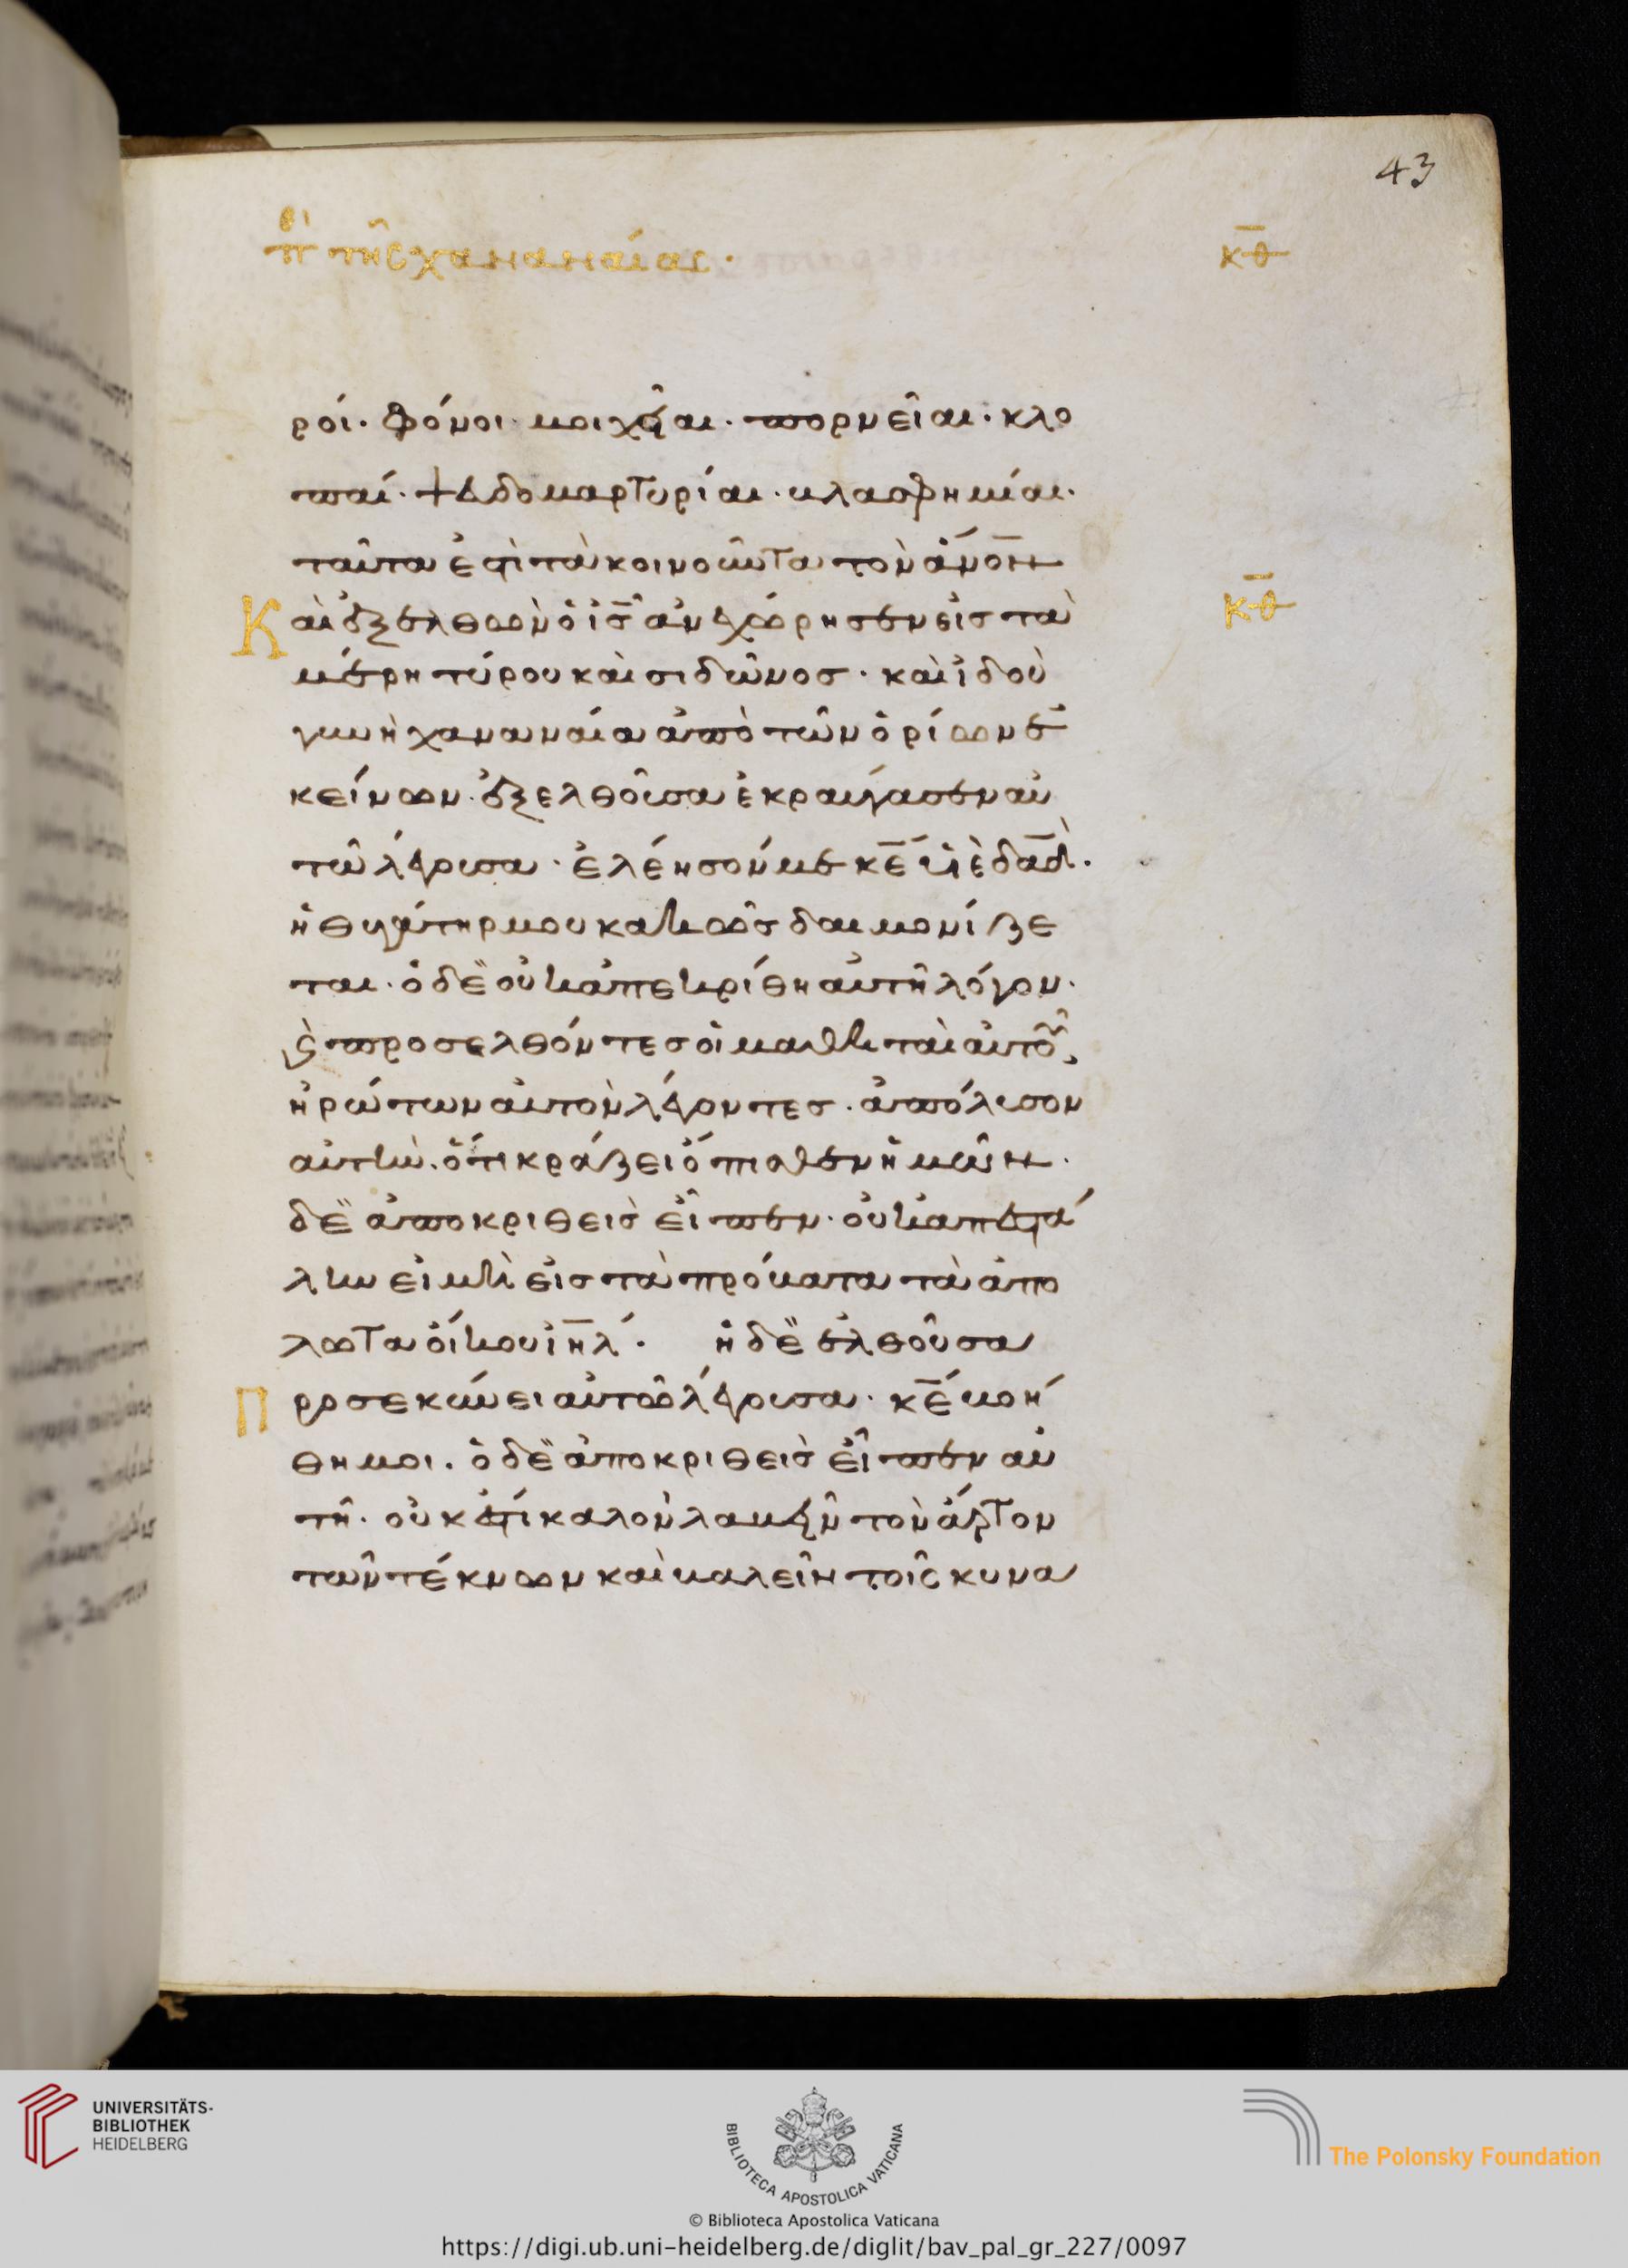 43
πε τῆς χαναναίας·
κθ
ροί· φόνοι· μοιχεῖαι· πορνεῖαι· κλο
παί· ψευδομαρτυρίαι· βλασφημίαι·
ταῦτα ἐστὶ τὰ κοινοῦντα τὸν ἄνον
Καὶ ἐξελθὼν ὁ ις ἀνεχώρησεν εἰς τὰ
κθ
μέρη τύρου καὶ σιδῶνος· καὶ ἰδοὺ
γυνὴ χαναναία ἀπὸ τῶν ὁρίων ἐ
κείνων· ἐξελθοῦσα ἐκραύγασεν αὐ
τῶ λέγουσα· ἐλέησόν με κε υἱὲ δαδ·
ἡ θυγάτηρ μου κακῶς δαιμονίζε
ται· ὁ δὲ οὐκ ἀπεκρίθη αὐτῆ λόγον·
ϗ προσελθόντες οἱ μαθηταὶ αὐτοῦ,
ἠρώτων αὐτὸν λέγοντες· ἀπόλυσον
αὐτὴν· ὅτι κράζει ὄπισθεν ἡμῶν·
δὲ ἀποκριθεὶς εἶπεν· οὐκ ἀπεστά
λην εἰ μὴ εἰς τὰ πρόβατα τὰ ἀπο
λωλότα οἴκου ιηλ· ἡ δὲ ἐλθοῦσα
Προσεκύνει αὐτῶ λέγουσα· κε βοή
θη μοι· ὁ δὲ ἀποκριθεὶς εἶπεν αὐ
τῆ· οὐκ ἔστι καλὸν λαβεῖν τὸν ἄρτον
τῶν τέκνων καὶ βαλεῖν τοῖς κυνα
UNIVERSITÄTS-
BIBLIOTHEK
HEIDELBERG
BIBLIOTECA APOSTOLICA VATICANA
The Polonsky Foundation
© Biblioteca Apostolica Vaticana
https://digi.ub.uni-heidelberg.de/diglit/bav_pal_gr_227/0097